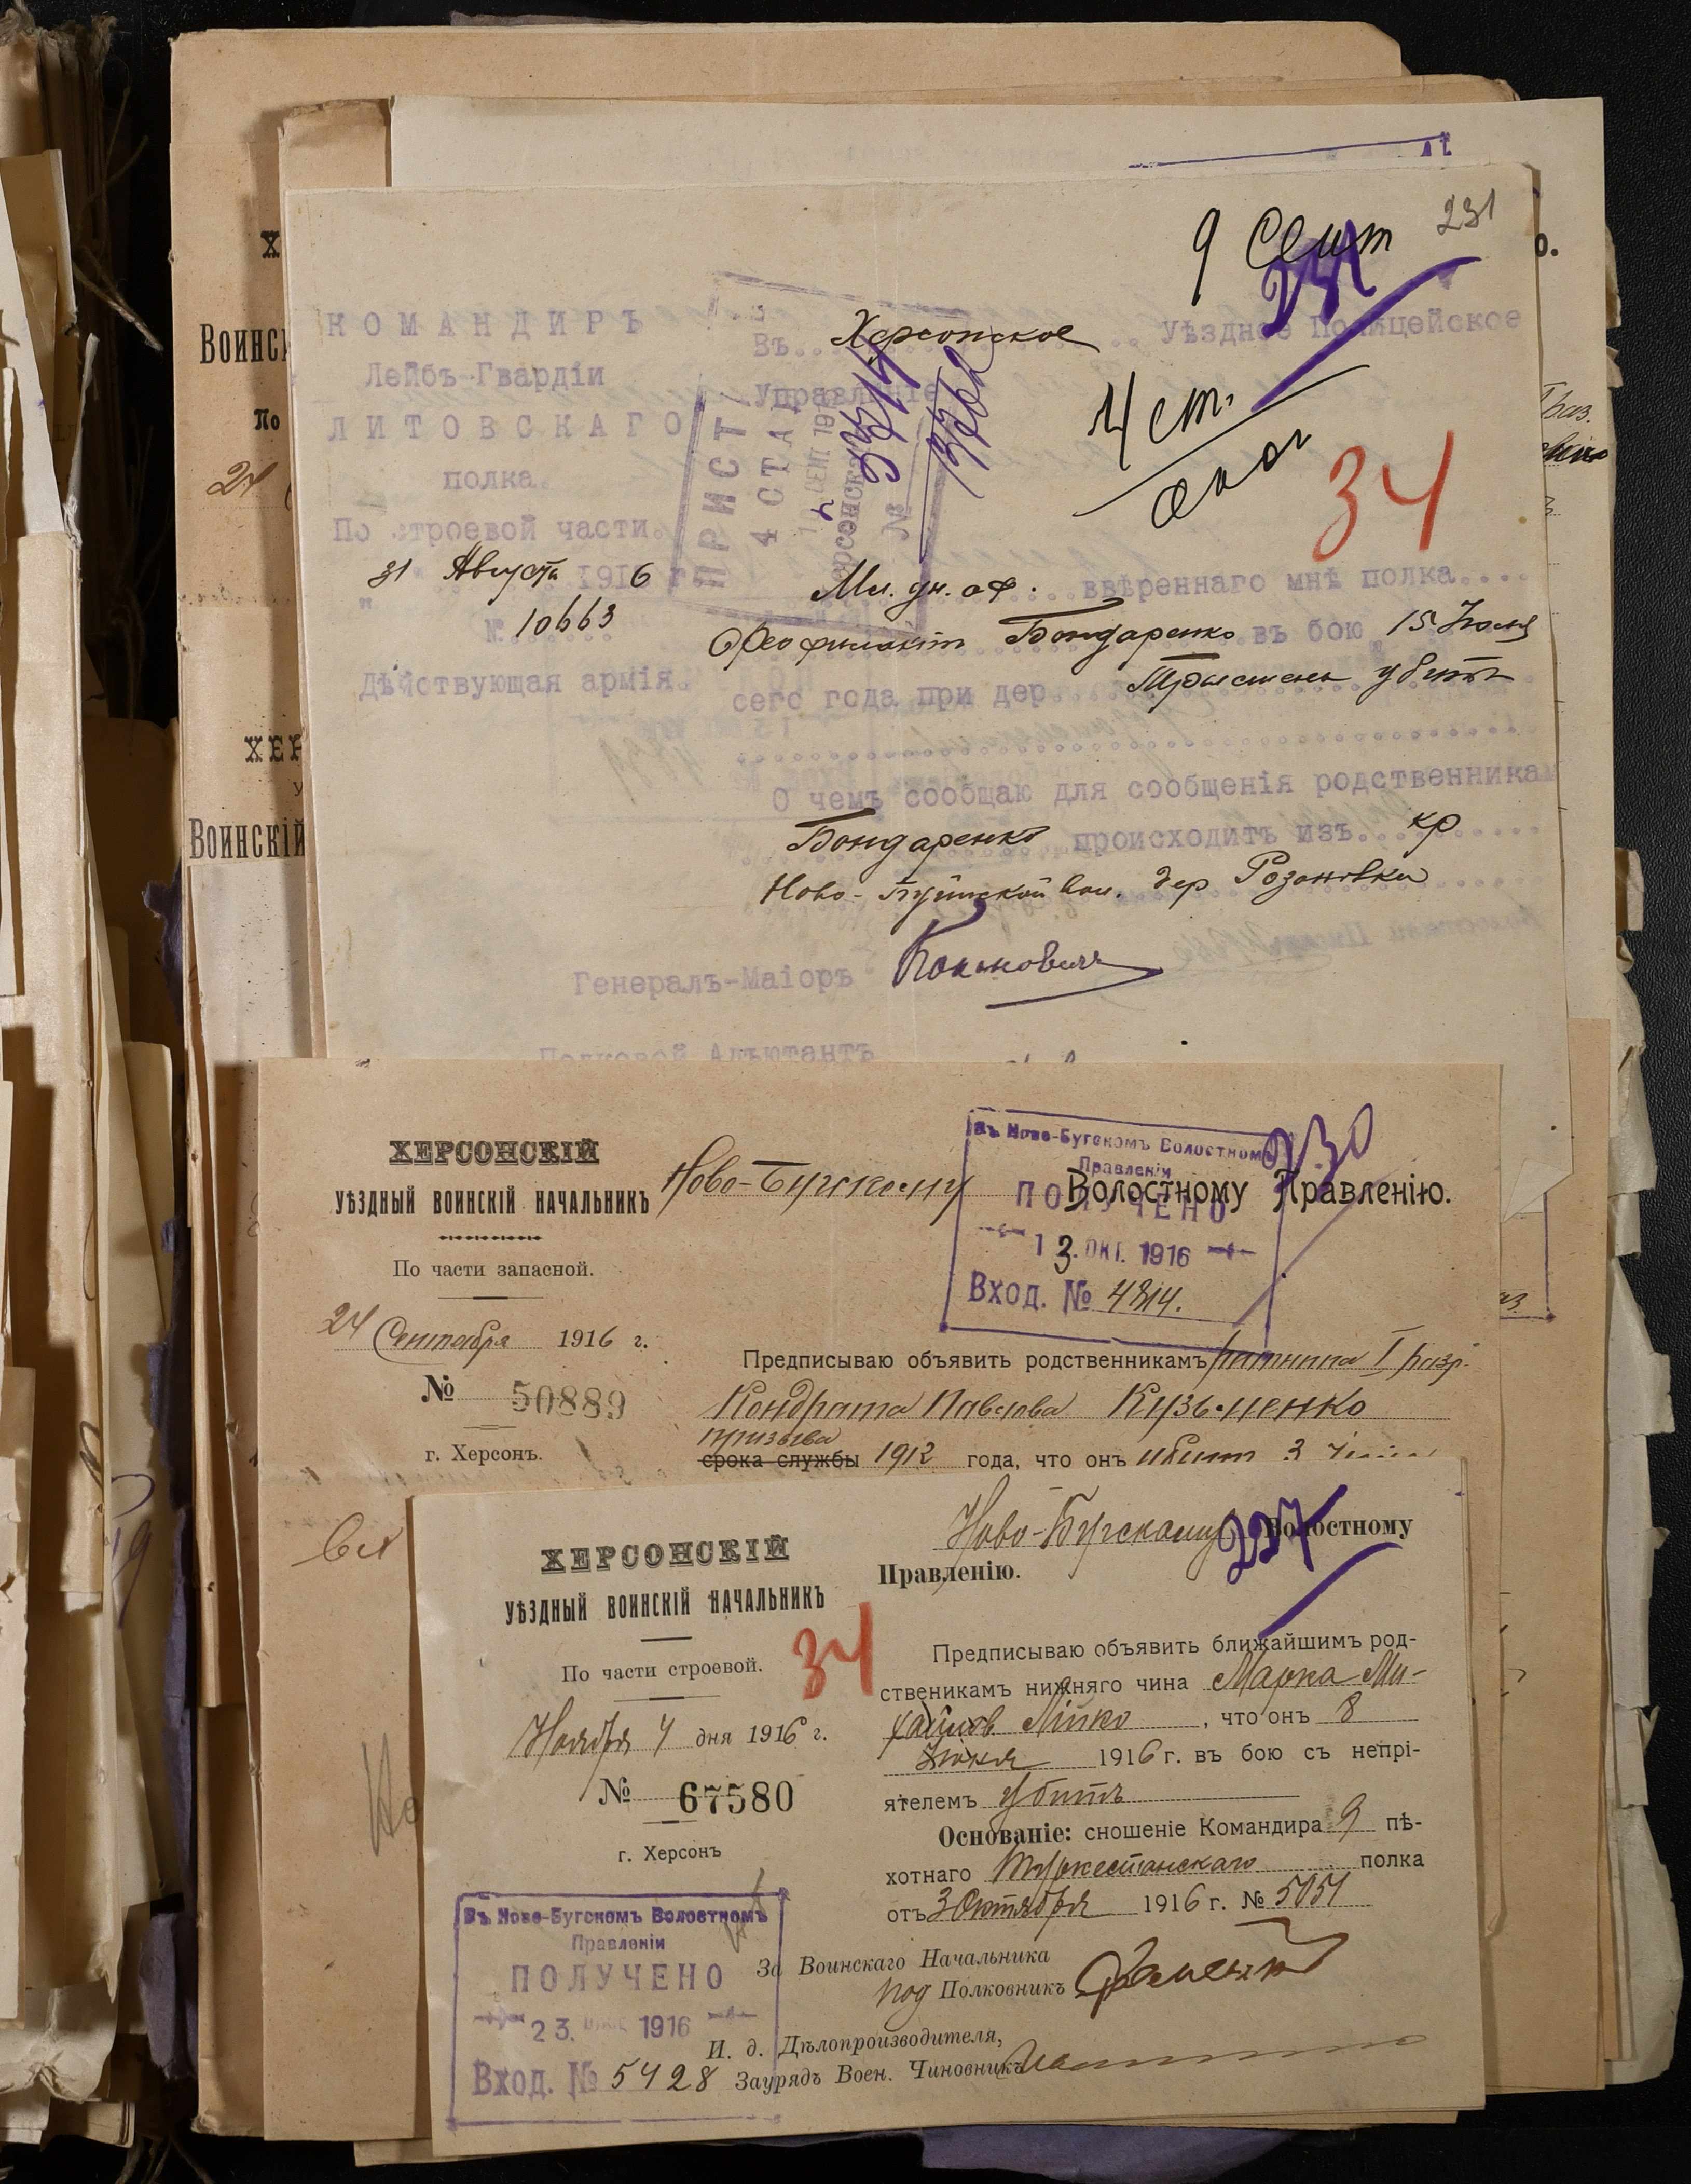 231
9 Сент
231
КОМАНДИРЪ
Лейбъ-Гвардіи
ЛИТОВСКАГО
полка.
По строевой части.
31 Августа 1916 г.
№ 10663
Дѣйствующая армія.
Въ Херсонское Уѣздное Полицейское
Управленіе
ПРИСТ
4 СТАН
СЕНТ 191
№
4 ст.
34
Мл. ун. оф. ввѣреннаго мнѣ полка
Феофилактъ Бондаренко въ бою 15 Іюля
сего года при дер. Трыстень убитъ
О чемъ сообщаю для сообщенія родственникам
Бондаренко происходитъ изъ кр
Ново-Бугской вол. дер Розановки
Генералъ-Маіоръ
Полковой Адъютантъ
ХЕРСОНСКІЙ
УѢЗДНЫЙ ВОИНСКІЙ НАЧАЛЬНИКЪ
По части запасной.
24 Сентября 1916 г.
№ 50889
г. Херсонъ.
Ново-Бугскому Волостному Правленію.
230
Въ Ново-Бугскомъ Волостномъ
Правленіи
ПОЛУЧЕНО
13. ОКТ. 1916
Вход. № 4814.
Предписываю объявить родственникамъ ратника I разр.
Кондрата Павлова Кузьменко
призыва
срока службы 1912 года, что онъ убит 3
ХЕРСОНСКІЙ
УѢЗДНЫЙ ВОИНСКІЙ НАЧАЛЬНИКЪ
По части строевой.
34
Ноября 4 дня 1916 г.
№ 67580
г. Херсонъ
Ново-Бугскому Волостному
227
Правленію.
Предписываю объявить ближайшимъ род-
ственикамъ нижняго чина Марка Ми-
хайлов Лійко, что онъ 8
Іюня 1916 г. въ бою съ непрі-
ятелемъ убитъ
Основаніе: сношеніе Командира 9 пѣ-
хотнаго Туркестанскаго полка
отъ 3 Октября 1916 г. № 5051
За Воинскаго Начальника
под Полковникъ
И. д. Дѣлопроизводителя,
Заурядъ Воен. Чиновникъ
Въ Ново-Бугскомъ Волостномъ
Правленіи
ПОЛУЧЕНО
23. 1916
Вход. № 5428
ВОИНСКІЙ